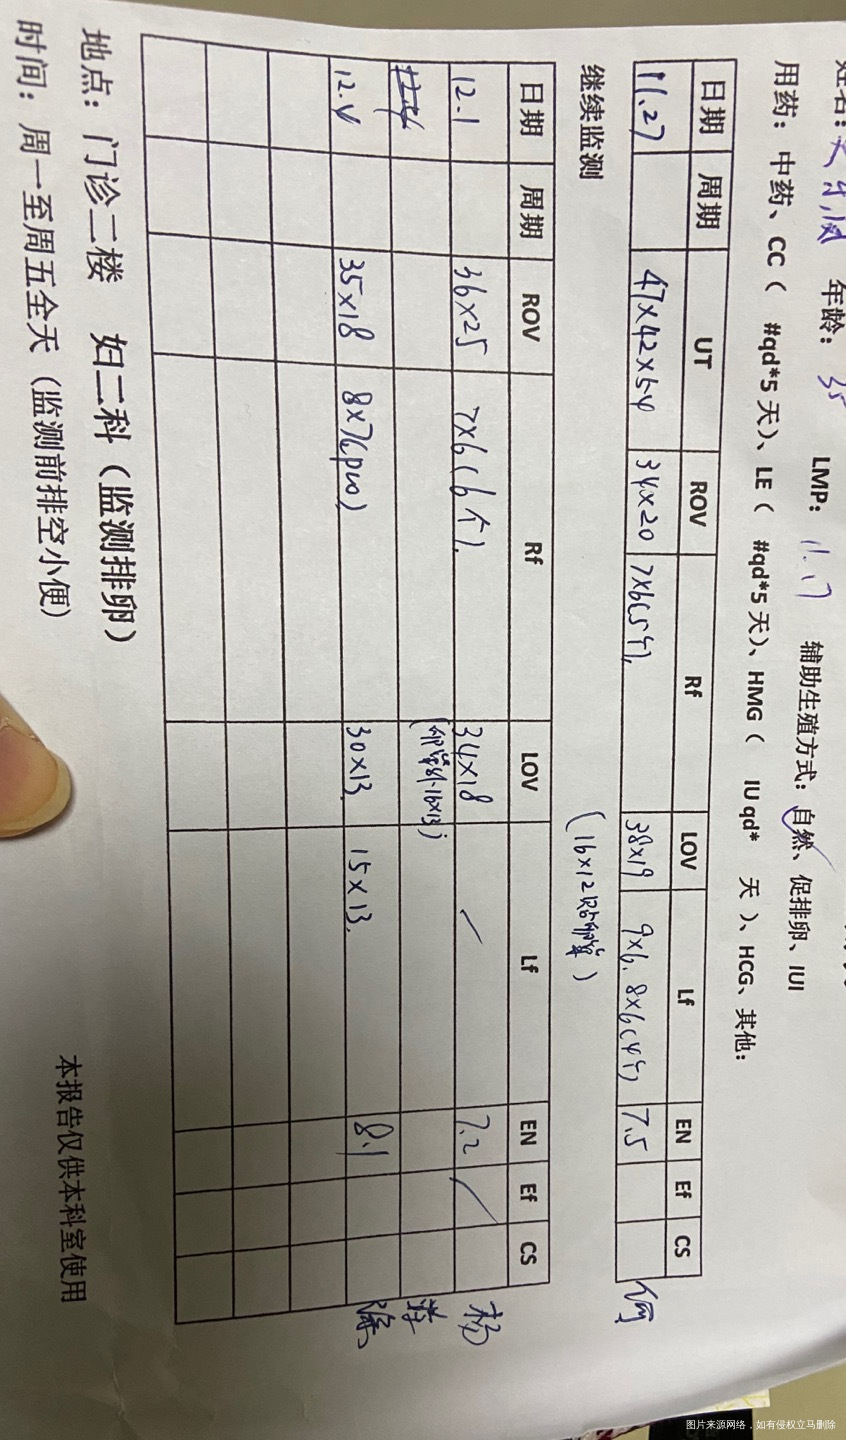 年龄：35 LMP：11.17 辅助生殖方式：自然、促排卵、IUI
用药：中药、CC（ #qd*5天）、LE（ #qd*5天）、HMG（ IU qd* 天）、HCG、其他：
日期 周期 UT ROV Rf LOV Lf EN Ef CS
11.27 47×42×54 34×20 7×6(5个), 38×19 9×6, 8×6(4个) 7.5 何
继续监测 (16×12 卵巢)
日期 周期 ROV Rf LOV Lf EN Ef CS
12.1 36×25 7×6(6个), 34×18 / 7.2 / 杨
(卵巢外16×13)
12.4 35×18 8×7(pco) 30×13. 15×13. 8.1
地点：门诊二楼 妇二科（监测排卵）
时间：周一至周五全天（监测前排空小便）
本报告仅供本科室使用
图片来源网络，如有侵权立马删除